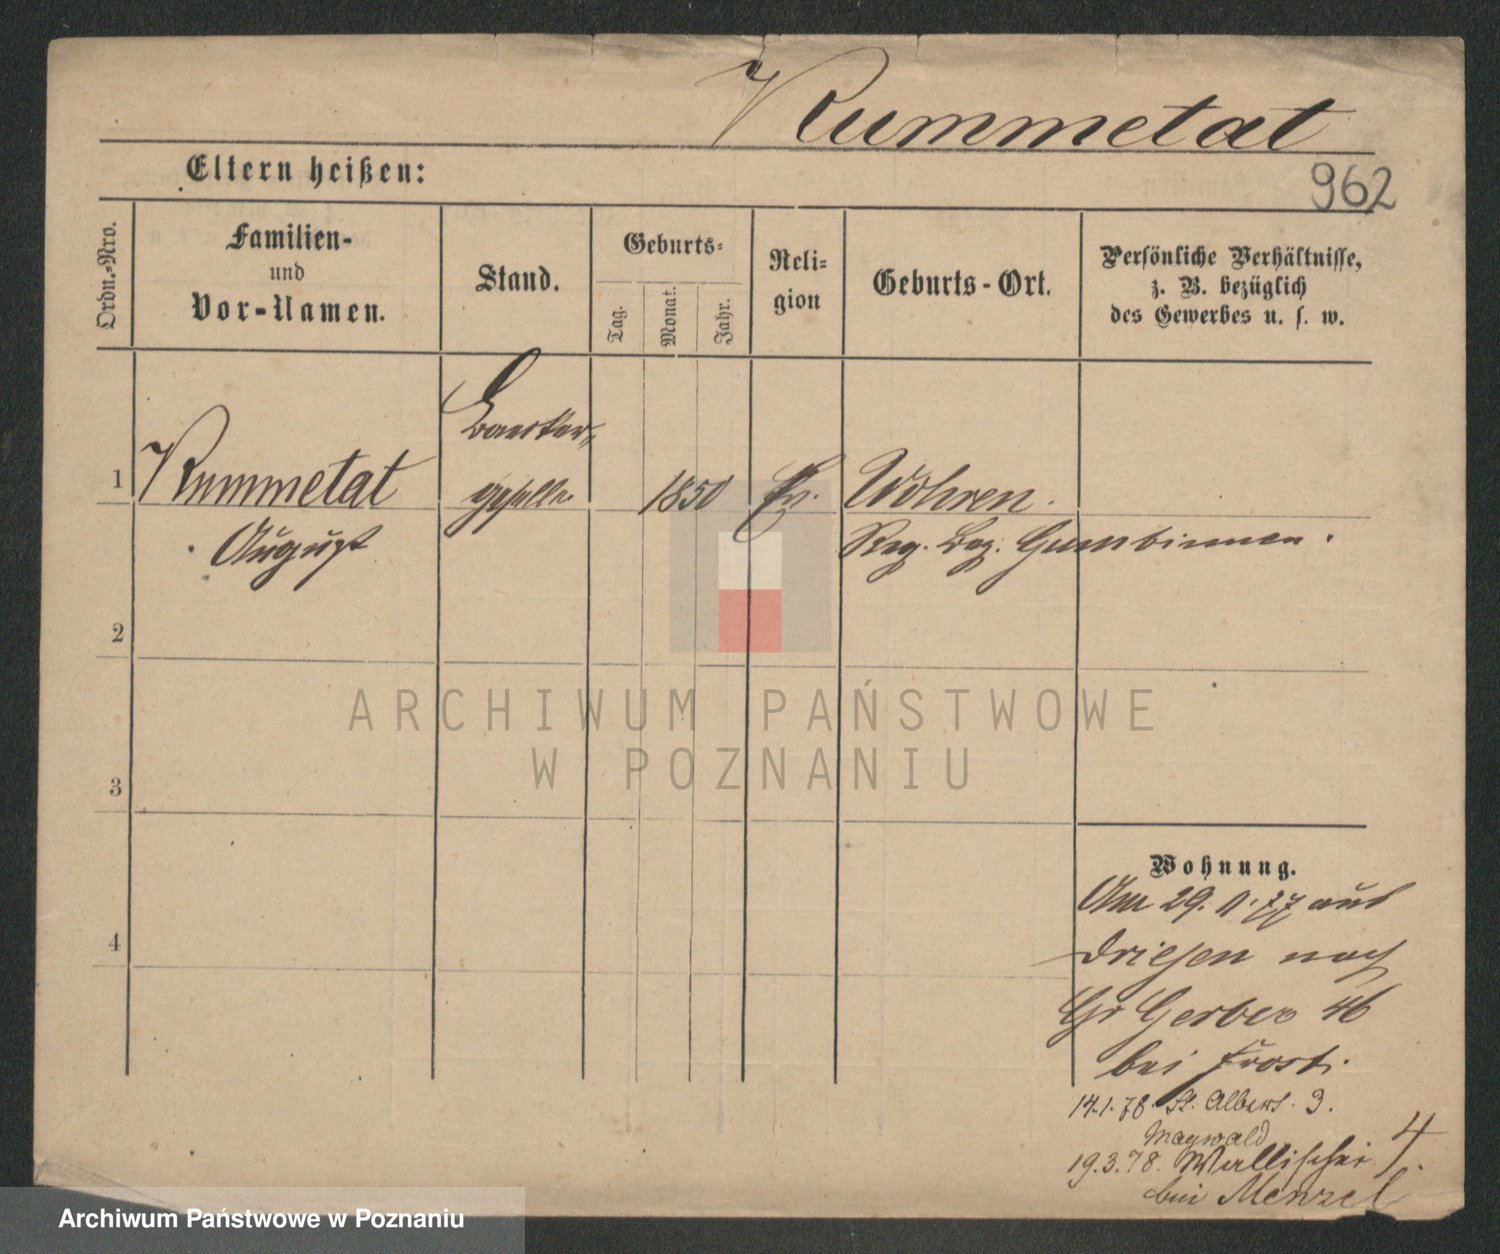 Kummetat
Eltern heißen:
962
Ordn.-Nro.
Familien-
und
Vor-Namen.
Stand.
Geburts-
Tag.
Monat.
Jahr.
Reli-
gion
Geburts-Ort.
Persönliche Verhältnisse,
z. B. bezüglich
des Gewerbes u. s. w.
Baecker-
1 Kummetat geselle 1850 Ev. Wöhren.
August Reg. Bez. Gumbinnen.
2
3
4
Wohnung.
Am 29. 1. 77 aus
Driesen nach
Gr Gerber 46
bei Frost.
14.1.78. St. Albert. 3.
Maywald
19.3.78. Wallischei 4.
bei Menzel
ARCHIWUM PAŃSTWOWE
W POZNANIU
Archiwum Państwowe w Poznaniu